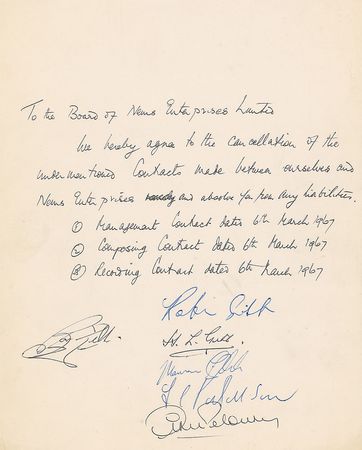 To the Board of Nems Enterprises Limited
We hereby agree to the cancellation of the
undermentioned Contracts made between ourselves and
Nems Enterprises and absolve you from any liabilities.
① Management Contract dated 6th March 1967
② Composing Contract dated 6th March 1967
③ Recording Contract dated 6th March 1967
Robin Gibb
Barry Gibb.
H. L. Gibb.
Maurice Gibb